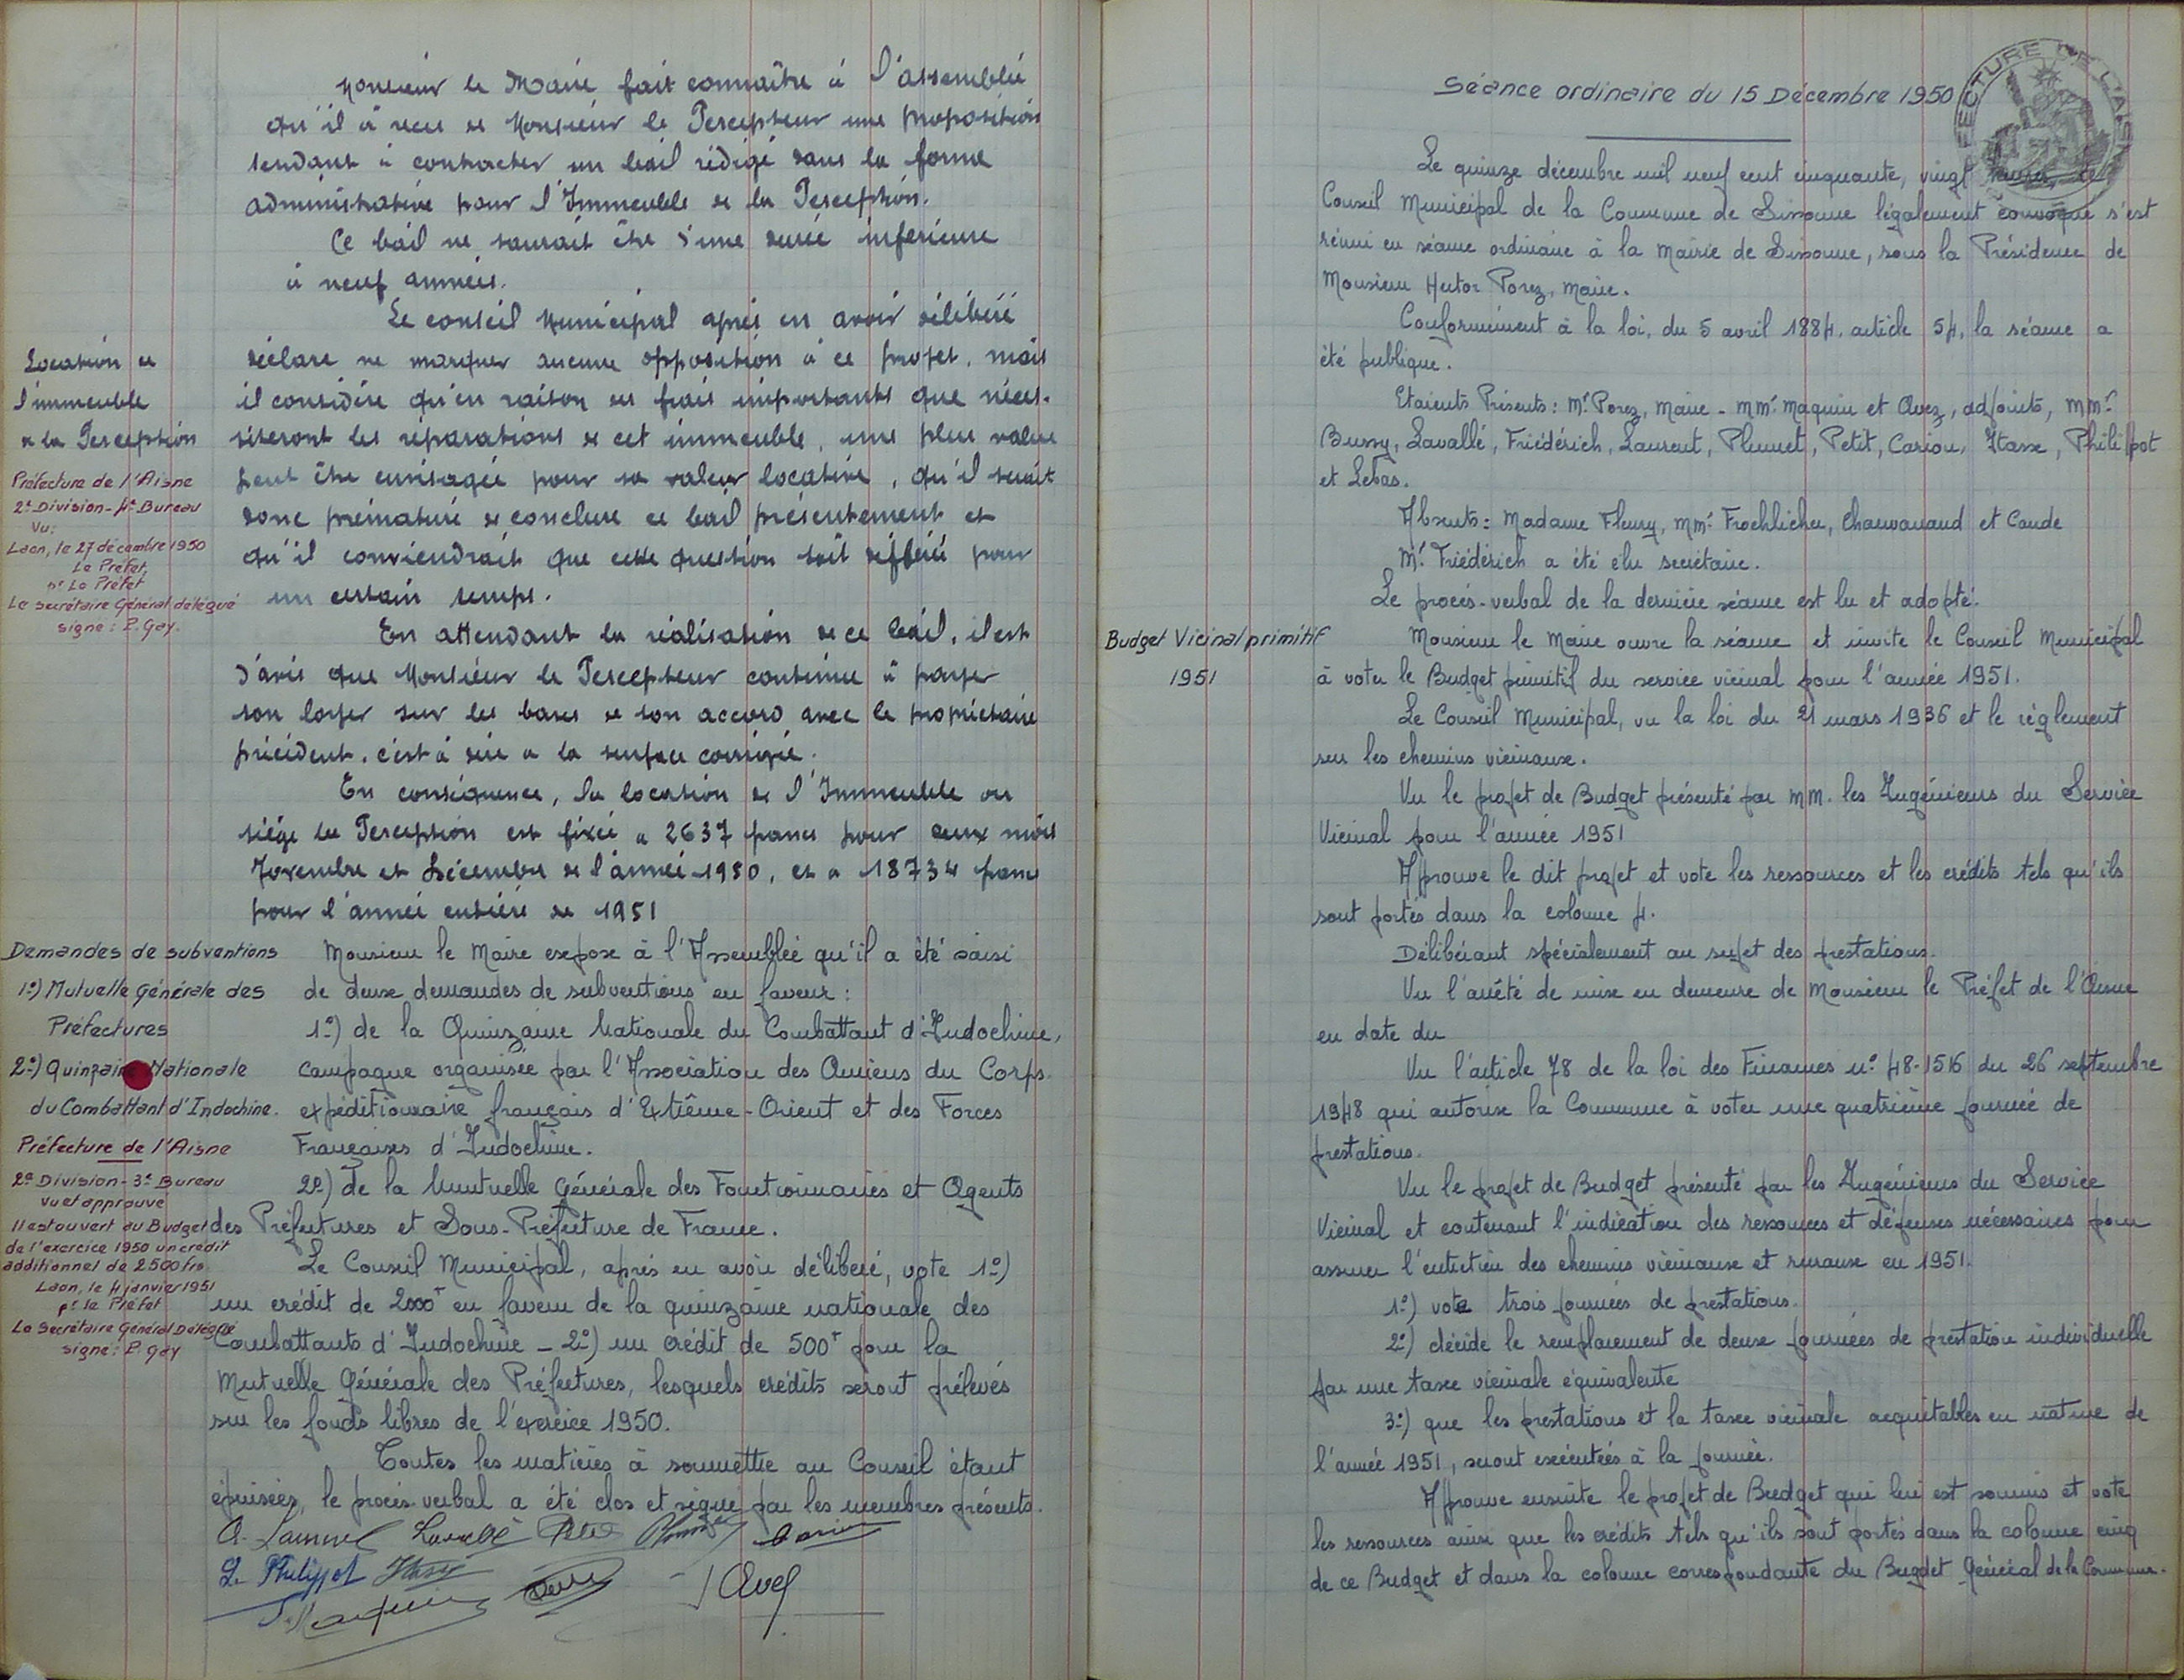 Monsieur le Maire fait connaître à l'assemblée
qu'il à recu de Monsieur le Percepteur une proposition
tendant à contracter un bail rédigé dans la forme
administrative pour l'Immeuble de la Perception.
Ce bail ne saurait être d'une durée inférieure
à neuf années.
Le conseil Municipal après en avoir délibéré
Location de
l'immeuble
de la Perception
déclare ne marquer aucune opposition à ce projet. mais
il considère qu'en raison des frais importants que néces-
siteront les réparations de cet immeuble, une plus value
peut être envisagée pour sa valeur locative, qu'il serait
donc prématuré de conclure ce bail présentement et
qu'il conviendrait que cette question soit différée pour
un certain temps.
Préfecture de l'Aisne
2e Division - 4e Bureau
Vu:
Laon, le 27 décembre 1950
Le Préfet,
pr Le Préfet
Le secrétaire Général délégué
signé: P. Gay.
En attendant la réalisation de ce bail, il est
d'avis que Monsieur le Percepteur continue à payer
son loyer sur les bases de son accord avec le propriétaire
précédent. c'est à dire a la surface corrigée.
En conséquence, la location de l'Immeuble ou
siège la Perception est fixée a 2637 francs pour deux mois
Novembre et Décembre de l'année 1950, et a 18734 francs
pour l'année entière de 1951
Demandes de subventions
1°) Mutuelle Générale des
Préfectures
2°) Quinzaine Nationale
du Combattant d'Indochine.
Monsieur le Maire expose à l'Assemblée qu'il a été saisi
de deux demandes de subventions en faveur:
1°) de la Quinzaine Nationale du Combattant d'Indochine,
campagne organisée par l'Association des Anciens du Corps.
expéditionnaire français d'Extrême-Orient et des Forces
Françaises d'Indochine.
2°) de la Mutuelle Générale des Fonctionnaires et Agents
des Préfectures et Sous-Préfecture de France.
Préfecture de l'Aisne
2e Division - 3e Bureau
vu et approuvé
Il est ouvert au Budget
de l'exercice 1950 un crédit
additionnel de 2500 frs
Laon, le 4 janvier 1951
pr le Préfet
Le Secrétaire Général Délégué
signé: P. Gay
Le Conseil Municipal, après en avoir délibéré, vote 1°)
un crédit de 2000f en faveur de la quinzaine nationale des
Combattants d'Indochine - 2°) un crédit de 500f pour la
Mutuelle Générale des Préfectures, lesquels crédits seront prélevés
sur les fonds libres de l'exercice 1950.
Toutes les matières à soumettre au Conseil étant
épuisées, le procès-verbal a été clos et signé par les membres présents.
Lavallé Petit
L. Philippot Itasse
Maquin Avez
Séance ordinaire du 15 Décembre 1950
PRÉFECTURE DE L'AISNE
Le quinze décembre mil neuf cent cinquante, vingt heures, le
Conseil Municipal de la Commune de Sissonne légalement convoqué s'est
réuni en séance ordinaire à la Mairie de Sissonne, sous la Présidence de
Monsieur Hector Porez, Maire.
Conformément à la loi, du 5 avril 1884, article 54, la séance a
été publique.
Etaients Présents: Mr Porez, Maire - MMrs Maquin et Avez, adjoints, MMrs
Bussy, Lavallé, Friédérich, Laurent, Plumet, Petit, Cariou, Itasse, Philippot
et Lebas.
Absents: Madame Fleury, MMrs Froehlicher, Charvonaud et Caude
Mr Friédérich a été élu secrétaire.
Le procès-verbal de la dernière séance est lu et adopté.
Budget Vicinal primitif
1951
Monsieur le Maire ouvre la séance et invite le Conseil Municipal
à voter le Budget primitif du service vicinal pour l'année 1951.
Le Conseil Municipal, vu la loi du 21 mars 1936 et le règlement
sur les chemins vicinaux.
Vu le projet de Budget présenté par MM. les Ingénieurs du Service
Vicinal pour l'année 1951
Approuve le dit projet et vote les ressources et les crédits tels qu'ils
sont portés dans la colonne 4.
Délibérant spécialement au sujet des prestations.
Vu l'arrêté de mise en demeure de Monsieur le Préfet de l'Aisne
en date du
Vu l'article 78 de la loi des Finances n° 48-1516 du 26 septembre
1948 qui autorise la Commune à voter une quatrième journée de
prestations.
Vu le projet de Budget présenté par les Ingénieurs du Service
Vicinal et contenant l'indication des ressources et dépenses nécessaires pour
assurer l'entretien des chemins vicinaux et ruraux en 1951.
1°) vote trois journées de prestations.
2°) décide le remplacement de deux journées de prestation individuelle
par une taxe vicinale équivalente
3°) que les prestations et la taxe vicinale acquitables en nature de
l'année 1951, seront exécutées à la journée.
Approuve ensuite le projet de Budget qui lui est soumis et vote
les ressources ainsi que les crédits tels qu'ils sont portés dans la colonne cinq
de ce Budget et dans la colonne correspondante du Bugdet Général de la Commune.